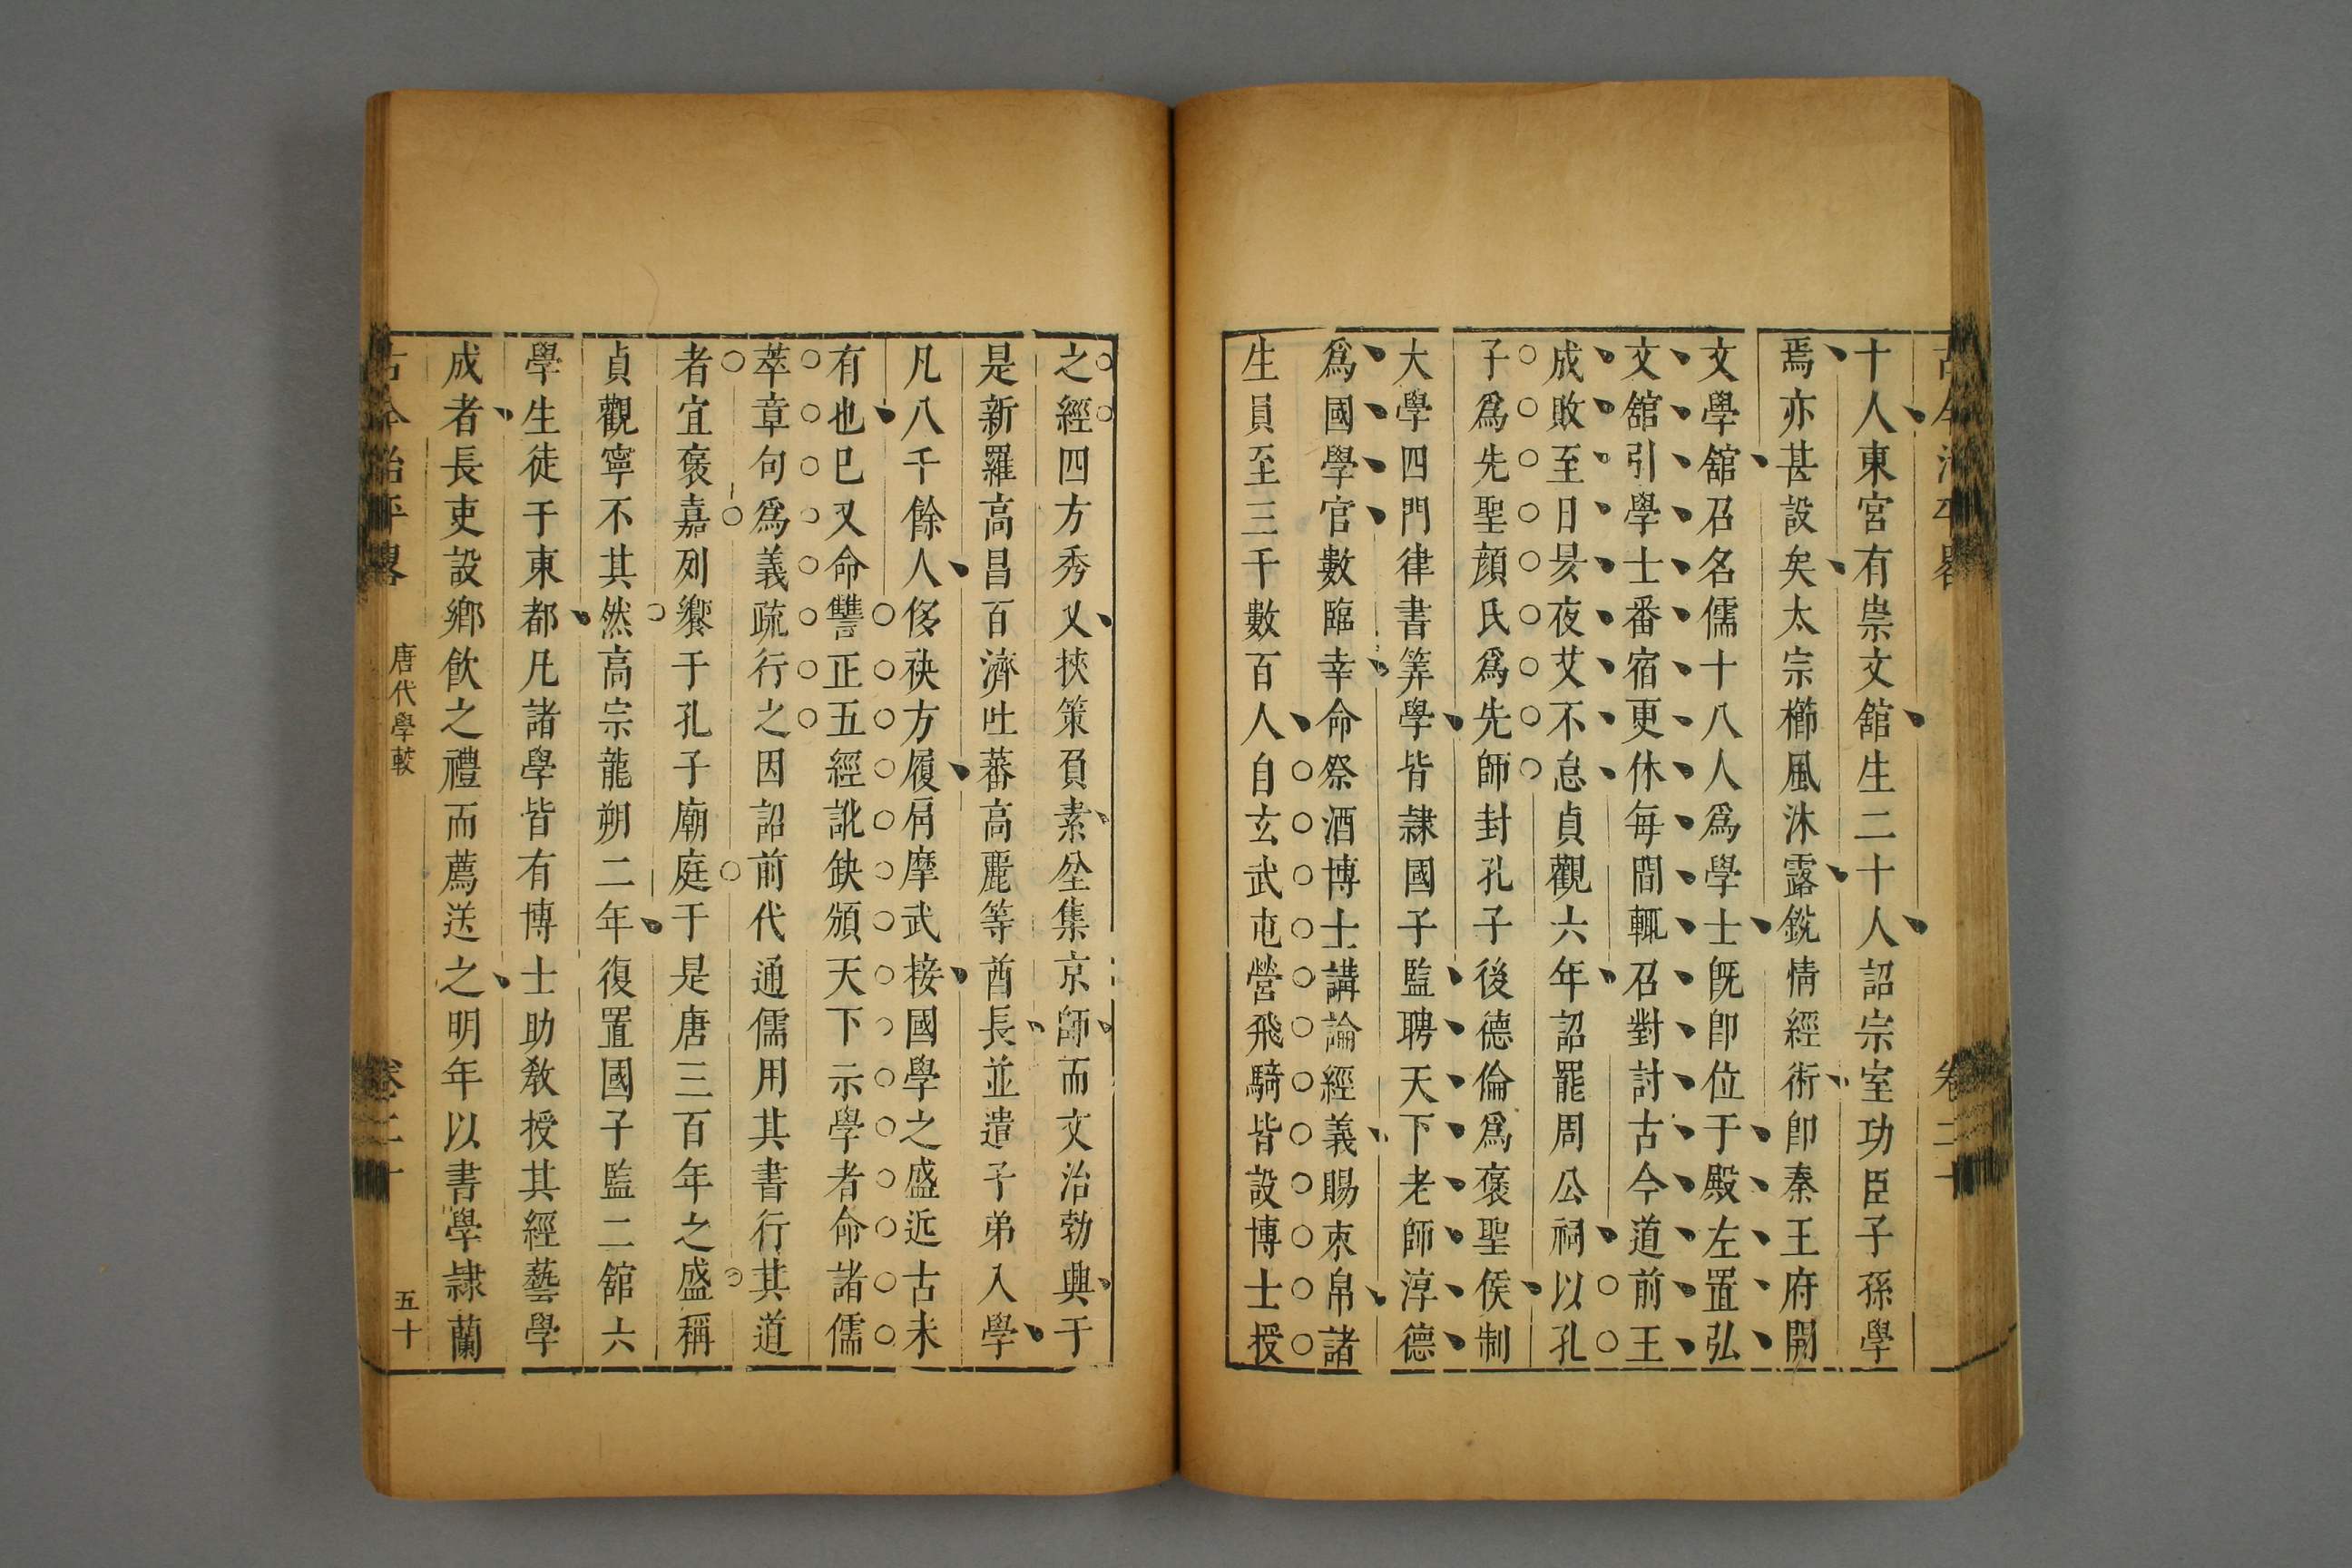 十人東宮有崇文舘生二十人詔宗室功臣子孫學
焉亦甚設矣太宗櫛風沐露銳情經術卽秦王府開
文學舘召名儒十八人爲學士旣卽位于殿左置弘
文舘引學士番宿更休每間輒召對討古今道前王
成敗至日昃夜艾不怠貞觀六年詔罷周公祠以孔
子爲先聖顔氏爲先師封孔子後德倫爲褒聖侯制
大學四門律書筭學皆隷國子監聘天下老師淳德
爲國學官數臨幸命祭酒博士講論經義賜朿帛諸
生員至三千數百人自玄武屯營飛騎皆設博士授
之經四方秀又挾策負素坌集京師而文治勃興于
是新羅高昌百濟吐蕃高麗等酋長並遣子弟入學
凡八千餘人侈袂方履肩摩武接國學之盛近古未
有也已又命讐正五經訛缺頒天下示學者命諸儒
萃章句爲義疏行之因詔前代通儒用其書行其道
者宜褒嘉列饗于孔子廟庭于是唐三百年之盛稱
貞觀寧不其然高宗龍朔二年復置國子監二舘六
學生徒于東都凡諸學皆有博士助敎授其經藝學
成者長吏設鄉飮之禮而薦送之明年以書學隷蘭
古今治平畧 唐代學較 卷二十 五十